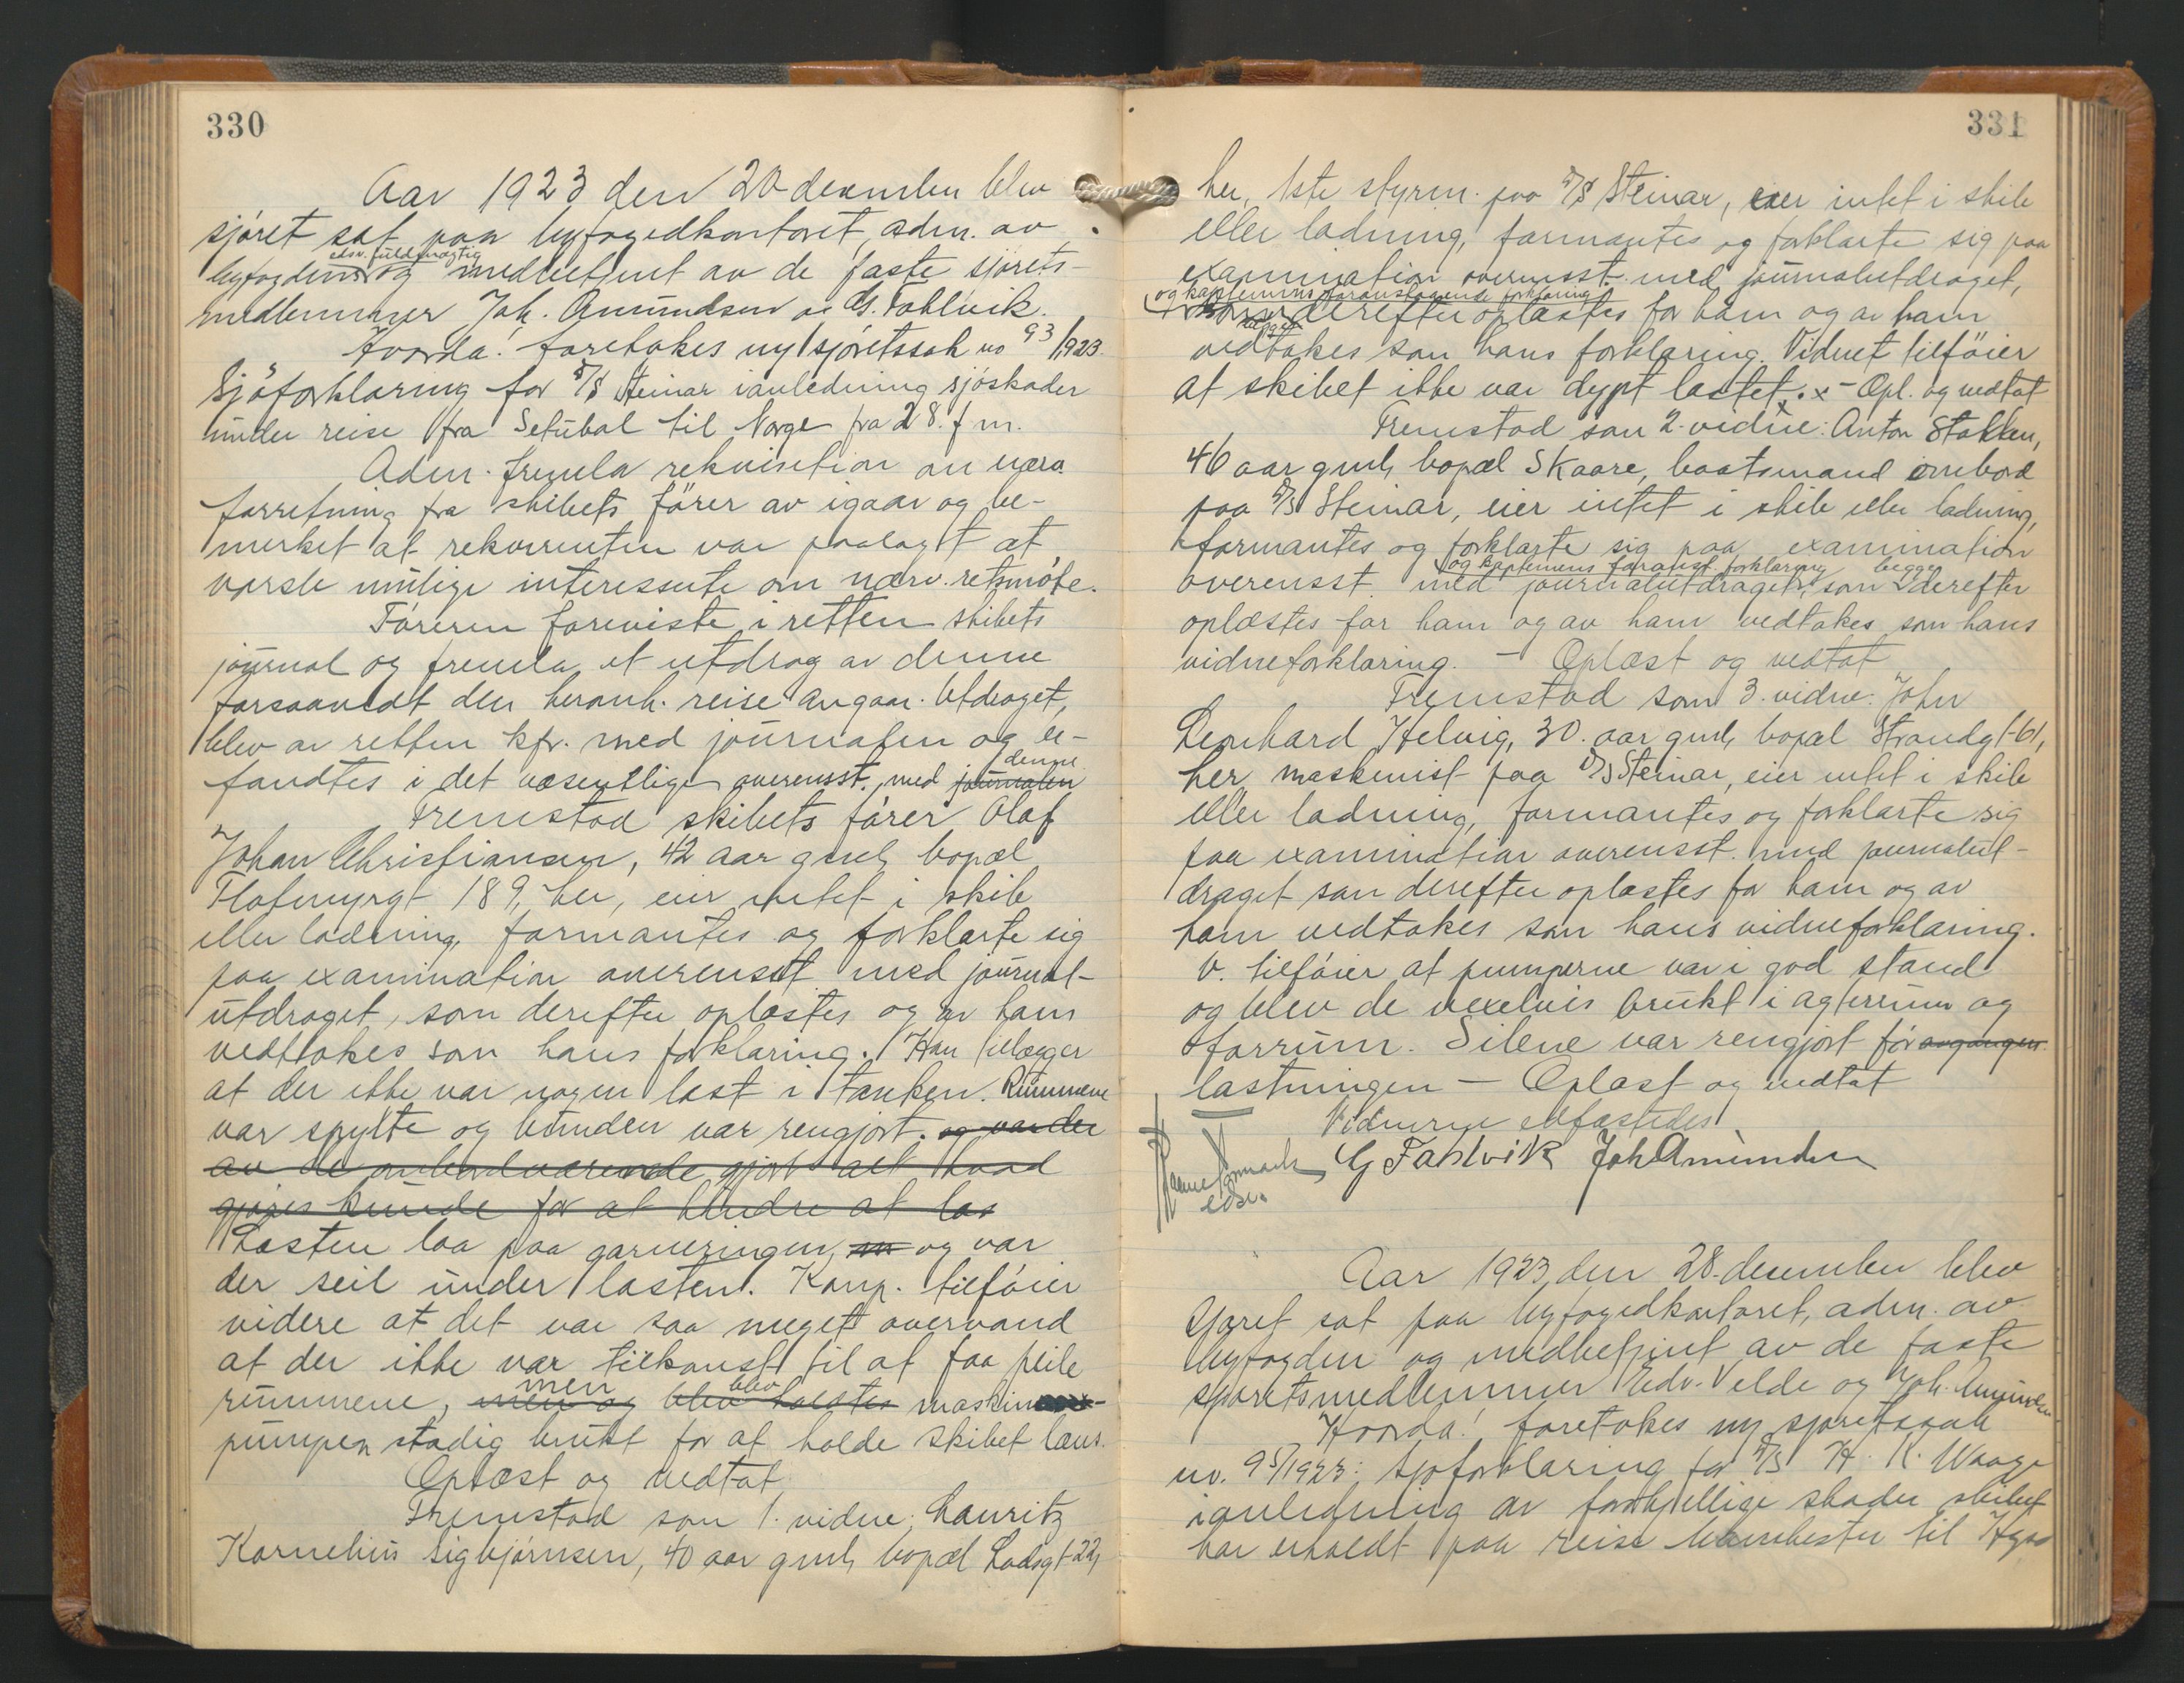 330
Aar 1923 den 20 desember blev
sjöret sat paa byfogedkontoret, adm. av
edsv. fuldmægtig
byfogdens og medbetjent av de faste sjörets-
medlemmer Joh. Amundsen og G. Fahlvik.
Hvorda! foretokes ny sjöretssak no 93/1923.
Sjöforklaring for D/S Steinar i anledning sjöskader
under reise fra Setubal til Norge fra 28. f m.
Adm. fremla rekvisition om nærv.
forretning fra skibets förer av igaar og be-
merket at rekvirenten var paalagt at
varsle mulige interesserte om nærv. retsmöte.
Föreren foreviste i retten skibets
journal og fremla et utdrag av denne
forsaavidt den heromh. reise angaar. Utdraget,
blev av retten kfr. med journalen og be-
denne
fandtes i det væsentlige overensst. med journalen
Fremstod skibets förer Olaf
Johan Christiansen, 42 aar gml, bopæl
Flotmyrgt 189, her, eier intet i skib
eller ladning, formantes og forklarte sig
paa examination overensst med journal-
utdraget, som derefter oplæstes og av ham
vedtokes som hans forklaring. Han tillægger
at der ikke var nogen last i tanken. Rummene
var spylte og bunden var rengjort. og var der
av de ombordværende gjort alt hvad
gjöres kunde for at hindre at las
Lasten laa paa garneringen, og var
der seil under lasten. Komp. tilföier
videre at det var saa meget overvand
at der ikke var tilkomst til at faa peile
men blev
rummene, men og blev holdtes maskin-
pumpen stadig brukt for at holde skibet læns.
Oplæst og vedtat
Fremstod som 1. vidne: Lauritz
Kornelius Sigbjörnsen, 40 aar gml, bopæl Lodsgt 22,
331
her, 1ste styrm. paa D/S Steinar, eier intet i skib
eller ladning, formantes og forklarte sig paa
examination overensst. med journalutdraget,
og kapteinens foranstaaende forklaring
derefter oplæstes for ham og av ham
vedtokes som hans forklaring. Vidnet tilföier
at skibet ikke var dypt lastet. x - Opl. og vedtat
Fremstod som 2. vidne: Anton Stakken,
46 aar gml, bopæl Skaare, baatsmand ombord
paa D/S Steinar, eier intet i skib eller ladning,
formantes og forklarte sig paa examination
og kapteinens foranst. forklaring begge
overensst. med journalutdraget, som derefter
oplæstes for ham og av ham vedtokes som hans
vidneforklaring. - Oplæst og vedtat
Fremstod som 3. vidne: John
Lenhard Helvig, 30. aar gml, bopæl Strandgt 61,
her, maskinist paa D/S Steinar, eier intet i skib
eller ladning, formantes og forklarte sig
paa examination overensst. med journalut-
draget som derefter oplæstes for ham og av
ham vedtokes som hans vidneforklaring.
V. tilföier at pumperne var i god stand
og blev de vexelvis brukt i agterrum og
forrum. Silene var rengjort för avgangen
lastningen - Oplæst og vedtat
Vidnerne edfæstedes
edsv.
G Fahlvik Joh Amundsen
Aar 1923, den 28. desember blev
Sjöret sat paa byfogedkontoret, adm. av
byfogden og medbetjent av de faste
sjöretsmedlemmer Edv. Velde og Joh. Amundsen
Hvorda! foretokes ny sjöretssak
nv. 95/1923: Sjöforklaring for D/S H. K. Waage
i anledning av forskjellige skader skibet
har erholdt paa reise Manchester til